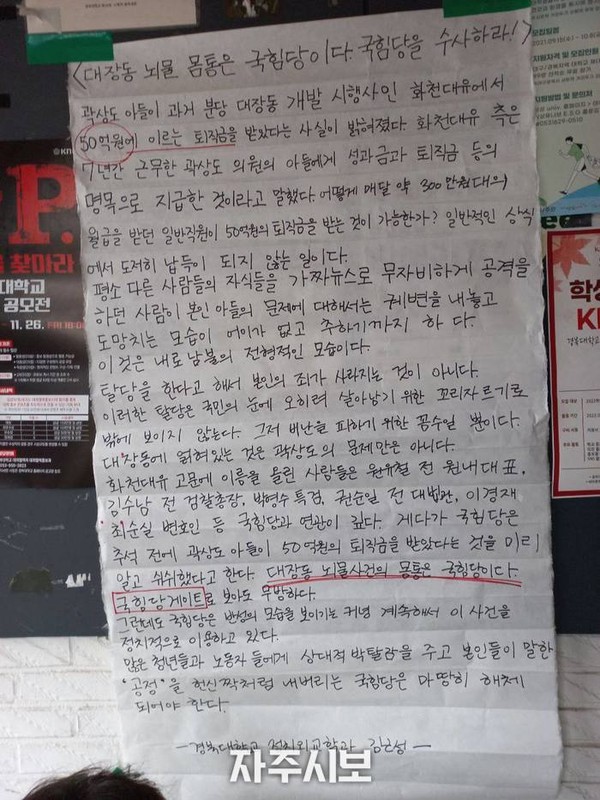 <대장동 뇌물 몸통은 국힘당이다. 국힘당을 수사하라!>
곽상도 아들이 과거 분당 대장동 개발 시행사인 화천대유에서
50억원에 이르는 퇴직금을 받았다는 사실이 밝혀졌다. 화천대유 측은
7년간 근무한 곽상도 의원의 아들에게 성과금과 퇴직금 등의
명목으로 지급한 것이라고 말했다. 어떻게 매달 약 300만원대의
월급을 받던 일반직원이 50억원의 퇴직금을 받는 것이 가능한가? 일반적인 상식
에서 도저히 납득이 되지 않는 일이다.
평소 다른 사람들의 자식들을 가짜뉴스로 무자비하게 공격을
하던 사람이 본인 아들의 문제에 대해서는 궤변을 내놓고
도망치는 모습이 어이가 없고 추하기까지 하다.
이것은 내로남불의 전형적인 모습이다.
탈당을 한다고 해서 본인의 죄가 사라지는 것이 아니다.
이러한 탈당은 국민의 눈에 오히려 살아남기 위한 꼬리자르기로
밖에 보이지 않는다. 그저 비난을 피하기 위한 꼼수일 뿐이다.
대장동에 얽혀있는 것은 곽상도의 문제만은 아니다.
화천대유 고문에 이름을 올린 사람들은 원유철 전 원내대표,
김수남 전 검찰총장, 박영수 특검, 권순일 전 대법관, 이경재
최순실 변호인 등 국힘당과 연관이 깊다. 게다가 국힘당은
추석 전에 곽상도 아들이 50억원의 퇴직금을 받았다는 것을 미리
알고 쉬쉬했다고 한다. 대장동 뇌물사건의 몸통은 국힘당이다.
국힘당게이트로 보아도 무방하다.
그런데도 국힘당은 반성의 모습을 보이기는 커녕 계속해서 이 사건을
정치적으로 이용하고 있다.
많은 청년들과 노동자들에게 상대적 박탈감을 주고 본인들이 말한
'공정'을 헌신짝처럼 내버리는 국힘당은 마땅히 해체
되어야 한다.
-경북대학교 정치외교학과 김근성-
자주시보
P.
찾아라
대학교
공모전
11. 26.
모집일정
지원방법 및 문의처
학생
경북대학교